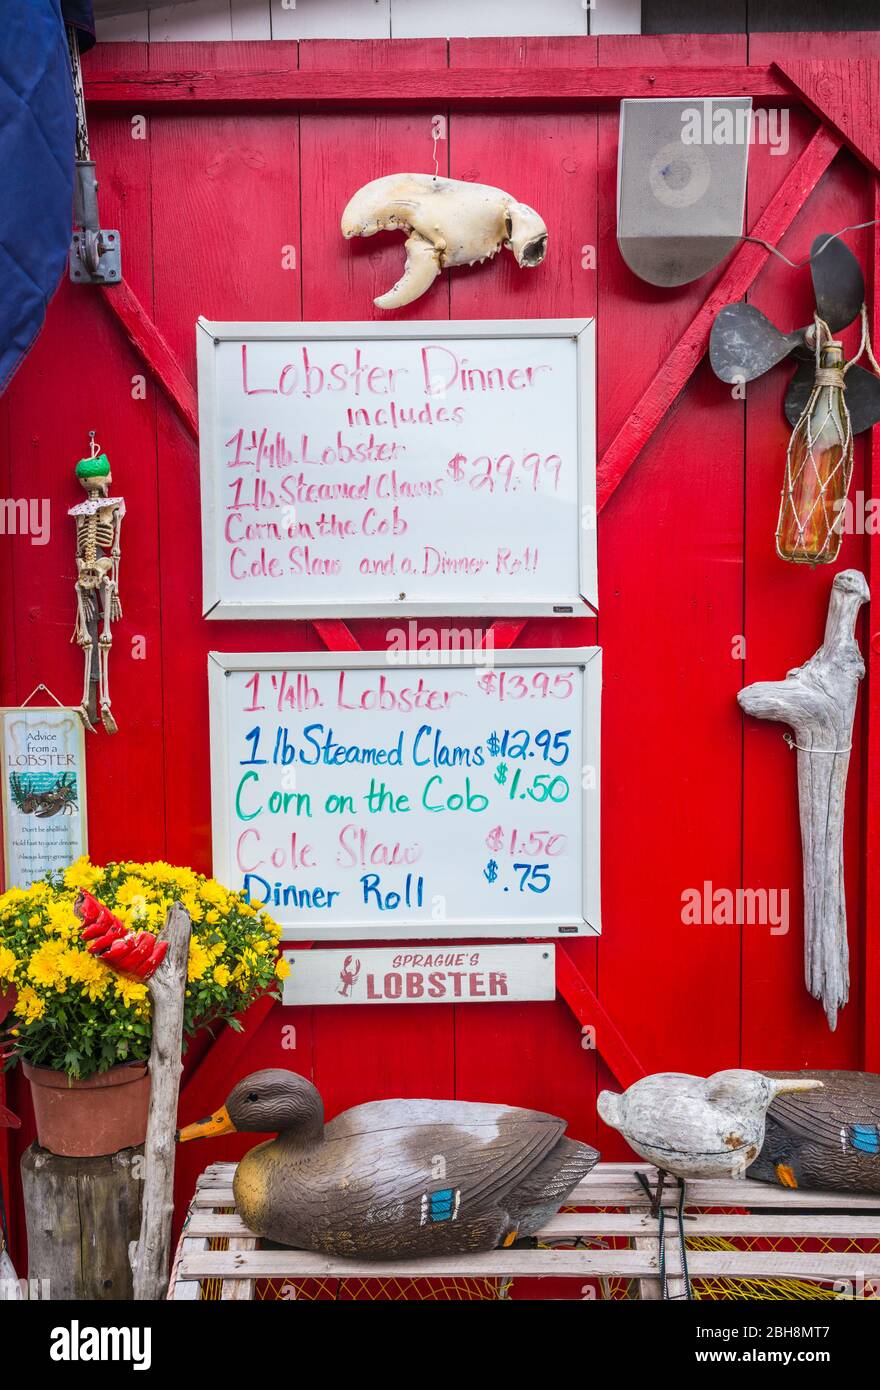 Lobster Dinner
includes
1-1/4lb. Lobster
1lb. Steamed Clams $29.99
Corn on the Cob
Cole Slaw and a Dinner Roll
1 1/4lb. Lobster $13.95
1 lb. Steamed Clams $12.95
Corn on the Cob $1.50
Cole Slaw $1.50
Dinner Roll $.75
Advice
from a
LOBSTER
Don't be shellfish
Hold fast to your dreams
Always keep growing
SPRAGUE'S
LOBSTER
alamy
Image ID: 2BH8MT7
www.alamy.com